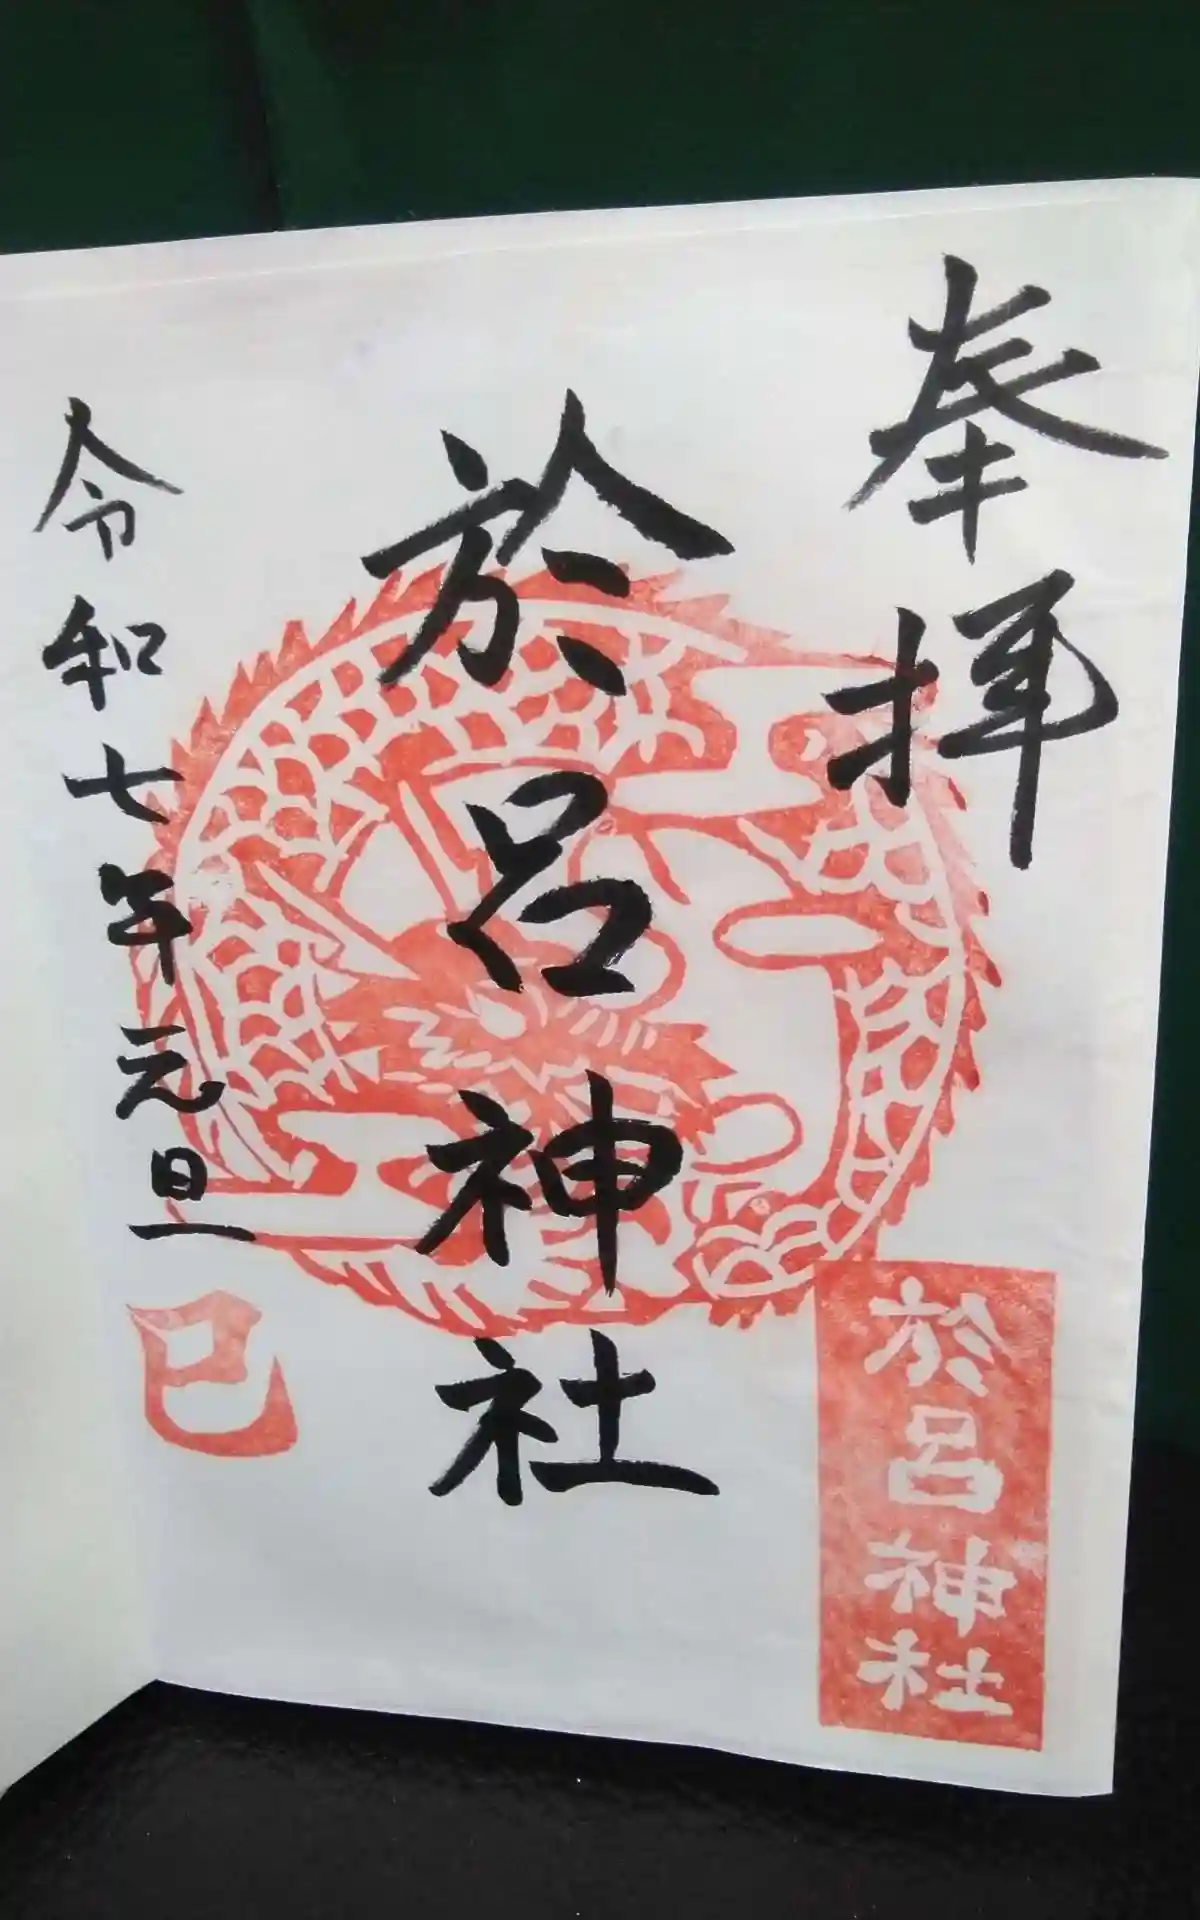 奉拝
於呂神社
於呂神社
令和七年元旦
巳